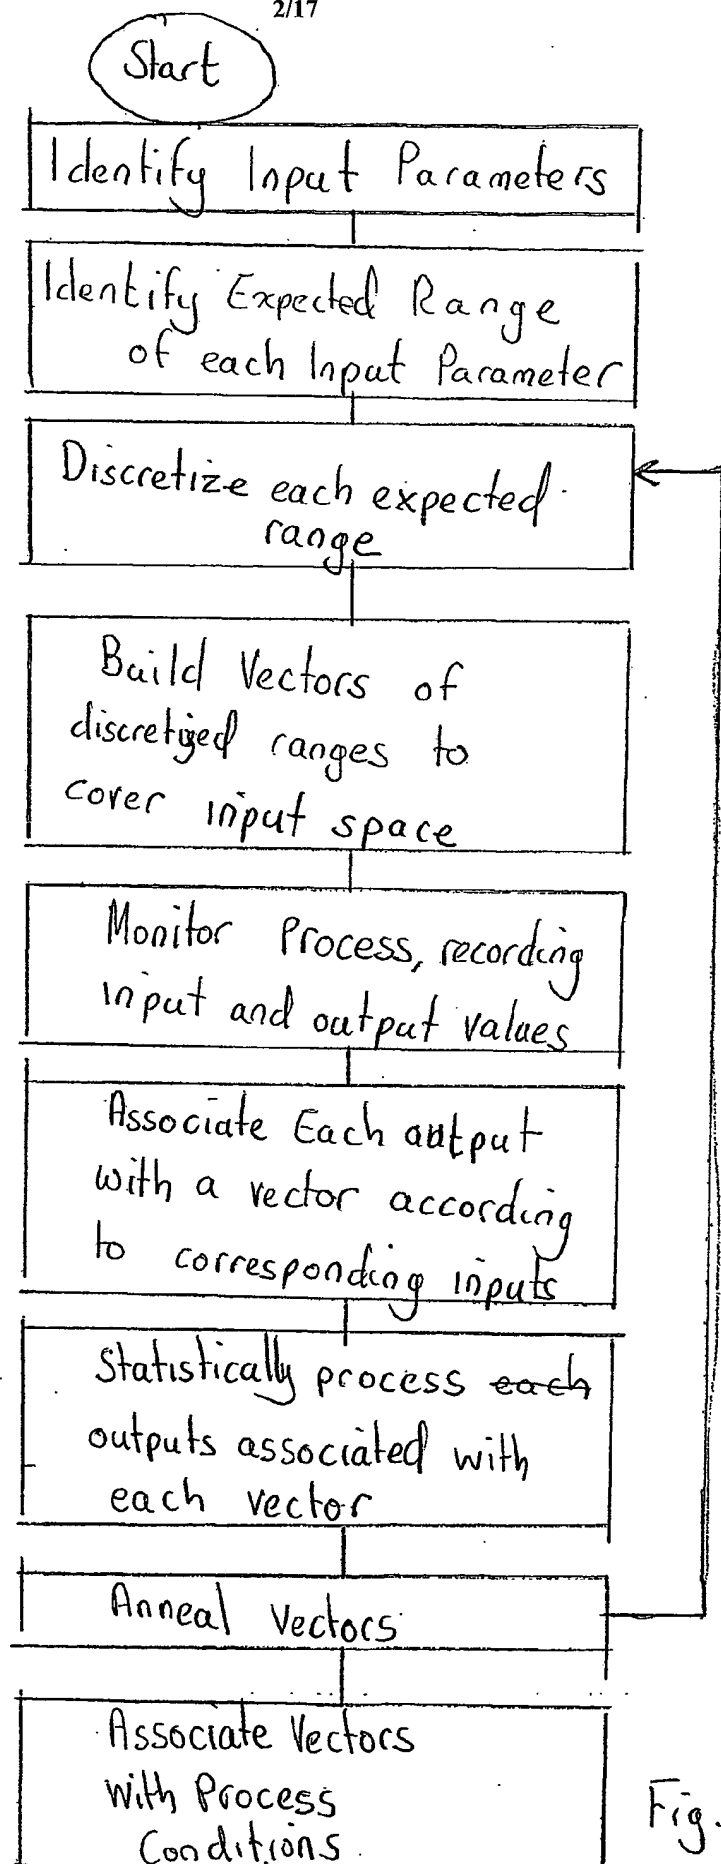 2/17
Start
Identify Input Parameters
Identify Expected Range
of each Input Parameter
Discretize each expected
range
Build Vectors of
discretized ranges to
cover input space
Monitor Process, recording
input and output values
Associate Each output
with a vector according
to corresponding inputs
Statistically process each
outputs associated with
each vector
Anneal Vectors
Associate Vectors
with Process
Conditions
Fig.